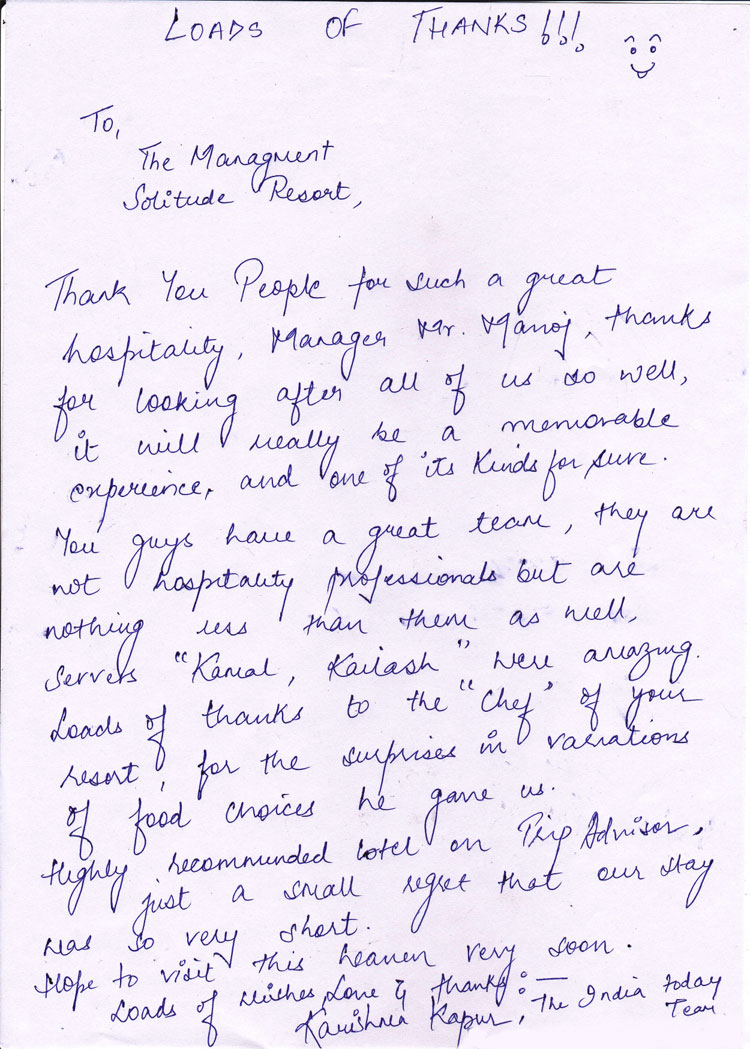 LOADS OF THANKS!!!
To,
The Managment
Solitude Resort,
Thank You People for such a great
hospitality, Manager Mr. Manoj, thanks
for looking after all of us so well,
it will really be a memorable
experience, and one of its kinds for sure.
You guys have a great team, they are
not hospitality professionals but are
nothing less than them as well,
Servers "Kamal, Kailash" were amazing.
Loads of thanks to the "Chef" of your
resort, for the surprises in variations
of food choices he gave us.
Highly recommended hotel on Trip Advisor,
just a small regret that our stay
was so very short.
Hope to visit this heaven very soon.
Loads of wishes, Love & thanks :—
Karishma Kapur, The India Today
Team